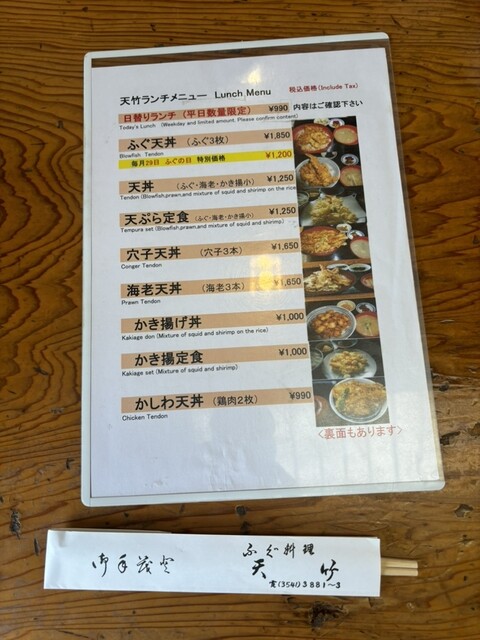 天竹ランチメニュー Lunch Menu 税込価格(Include Tax)
日替りランチ (平日数量限定) ¥990 内容はご確認下さい
Today's Lunch (Weekday and limited amount. Please confirm content)
ふぐ天丼 (ふぐ3枚) ¥1,850
Blowfish Tendon
毎月29日 ふぐの日 特別価格 ¥1,200
天丼 (ふぐ・海老・かき揚小) ¥1,250
Tendon (Blowfish,prawn,and mixture of squid and shirimp on the rice)
天ぷら定食 (ふぐ・海老・かき揚小) ¥1,250
Tempura set (Blowfish,prawn,and mixture of squid and shirimp)
穴子天丼 (穴子3本) ¥1,650
Conger Tendon
海老天丼 (海老3本) ¥1,650
Prawn Tendon
かき揚げ丼 ¥1,000
Kakiage don (Mixture of squid and shirimp on the rice)
かき揚定食 ¥1,000
Kakiage set (Mixture of squid and shirimp)
かしわ天丼 (鶏肉2枚) ¥990
Chicken Tendon
<裏面もあります>
御手茂登
ふぐ料理
天竹
(3541)3881~3